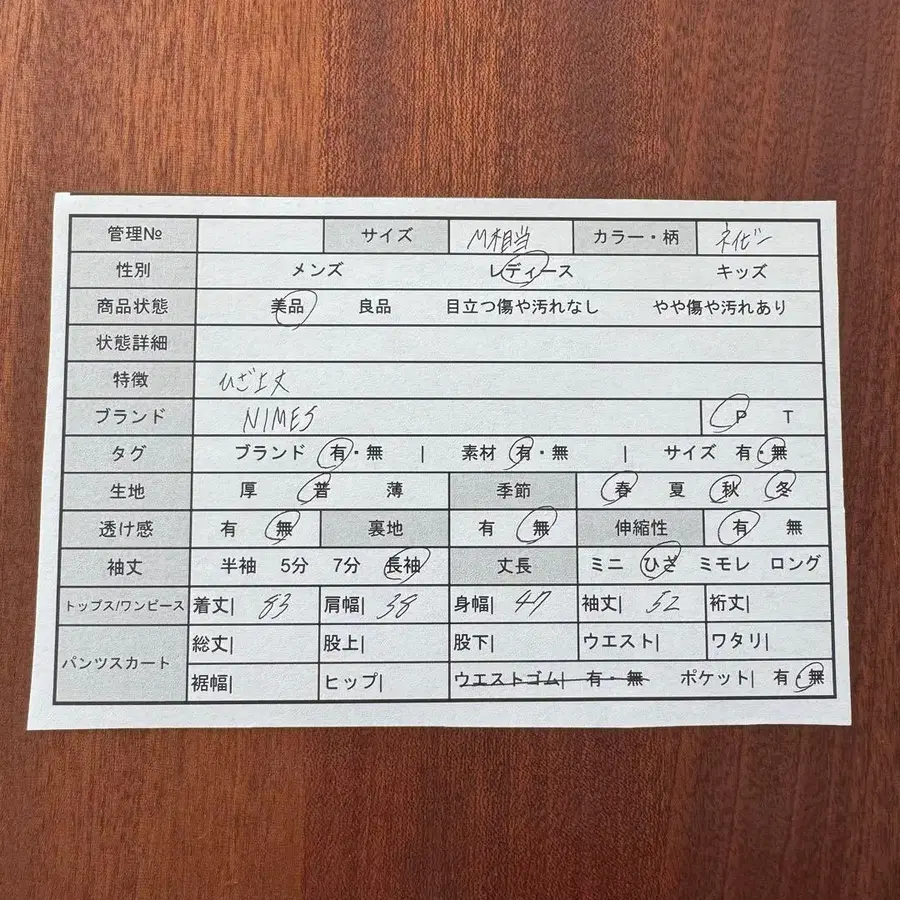 管理№ サイズ M相当 カラー・柄 ネイビー
性別 メンズ レディース キッズ
商品状態 美品 良品 目立つ傷や汚れなし やや傷や汚れあり
状態詳細
特徴 ひざ上丈
ブランド NIMES P T
タグ ブランド 有・無 | 素材 有・無 | サイズ 有・無
生地 厚 普 薄 季節 春 夏 秋 冬
透け感 有 無 裏地 有 無 伸縮性 有 無
袖丈 半袖 5分 7分 長袖 丈長 ミニ ひざ ミモレ ロング
トップス/ワンピース 着丈| 83 肩幅| 38 身幅| 47 袖丈| 52 裄丈|
パンツスカート 総丈| 股上| 股下| ウエスト| ワタリ|
裾幅| ヒップ| ウエストゴム| 有・無 ポケット| 有・無